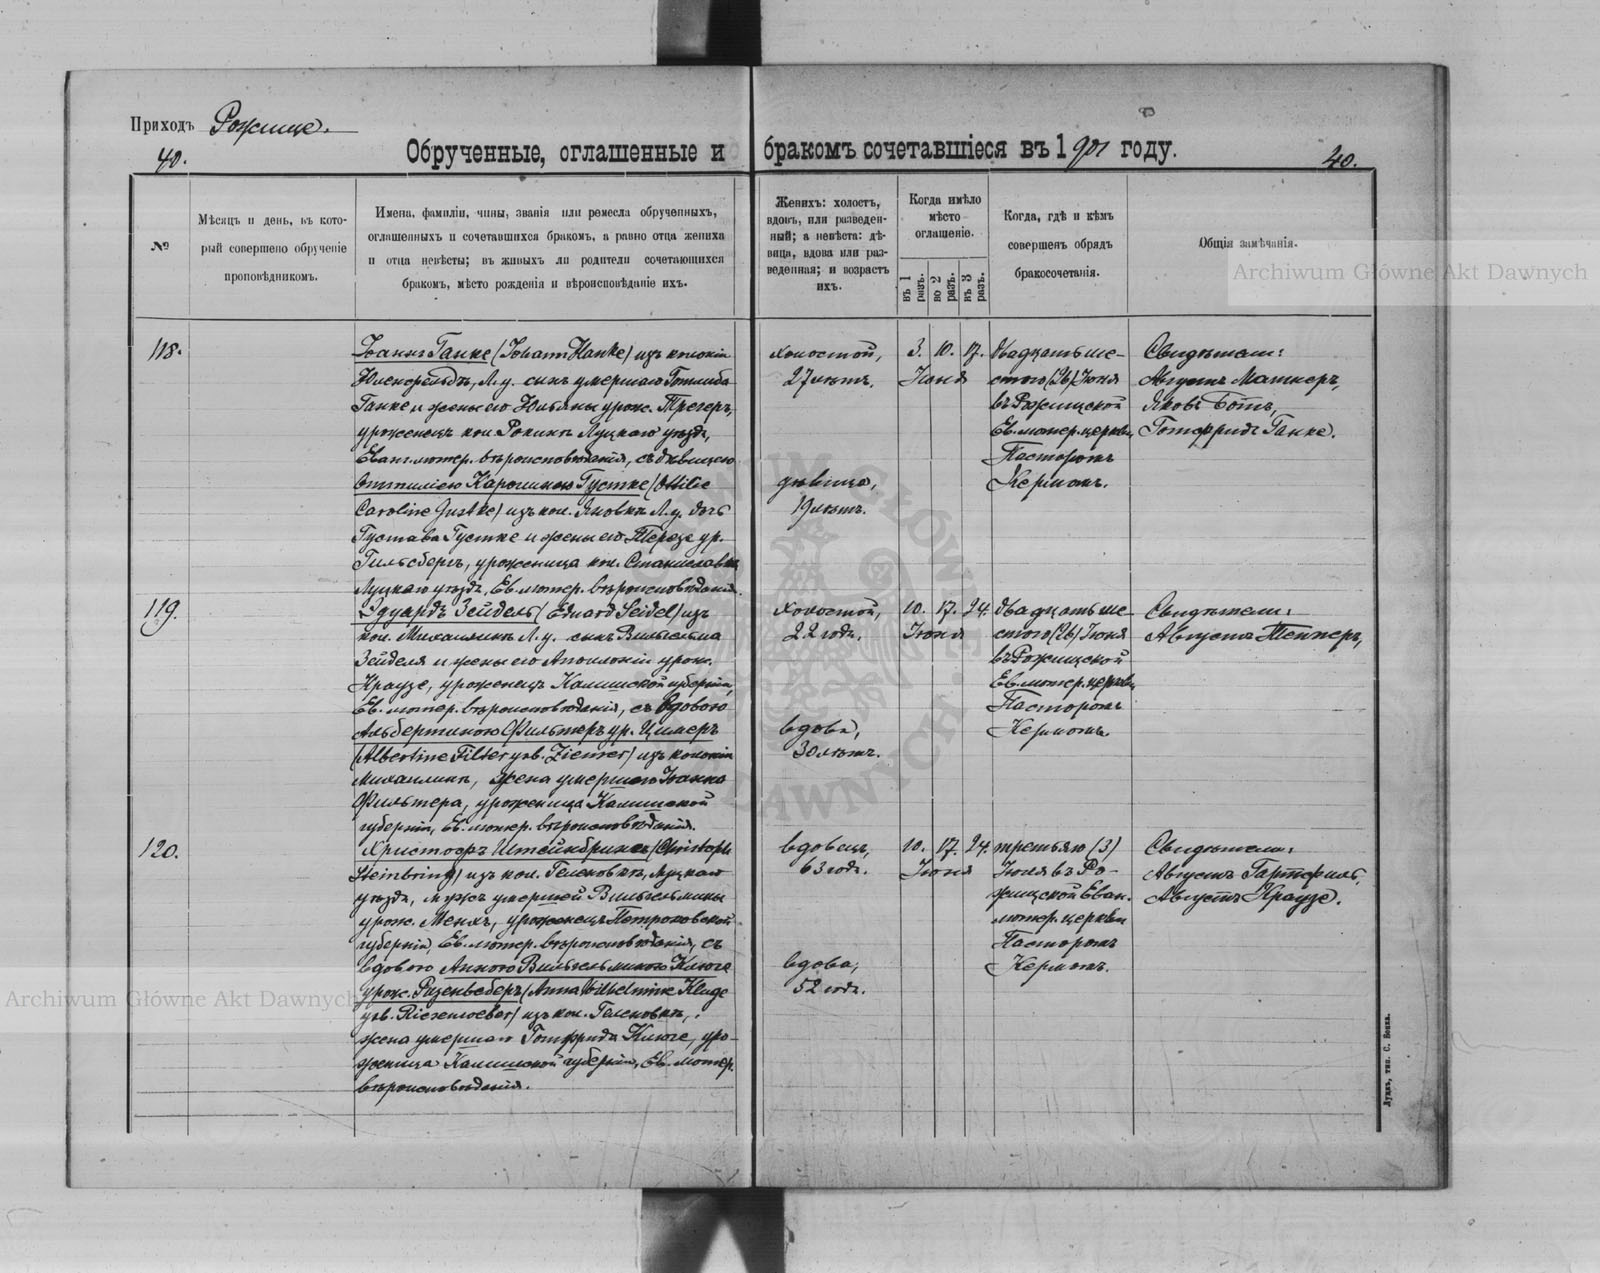 Приходъ Рожище.
40.
Обрученные, оглашенные и бракомъ сочетавшіеся въ 1901 году.
40.
№
Мѣсяцъ и день, въ кото-
рый совершено обрученіе
проповѣдникомъ.
Имена, фамиліи, чины, званія или ремесла обрученныхъ,
оглашенныхъ и сочетавшихся бракомъ, а равно отца жениха
и отца невѣсты; въ живыхъ ли родители сочетающихся
бракомъ, мѣсто рожденія и вѣроисповѣданіе ихъ.
Женихъ: холостъ,
вдовъ, или разведен-
ный; а невѣста: дѣ-
вица, вдова или раз-
веденная; и возрастъ
ихъ.
Когда имѣло
мѣсто
оглашеніе.
въ 1
разъ.
во 2
разъ.
въ 3
разъ.
Когда, гдѣ и кѣмъ
совершенъ обрядъ
бракосочетанія.
Общія замѣчанія.
Archiwum Główne Akt Dawnych
118.
Іоаннъ Ганке (Johann Hanke) изъ колоніи
Л. у. сынъ умершаго Готлиба
Ганке и жены его Юльяны урож. Трегеръ,
уроженецъ кол. Рокини Луцкаго уѣзда,
Еванг. лютер. вѣроисповѣданія, съ дѣвицею
Оттиліею Каролиною Густке (Ottilie
Caroline Gustke) изъ кол. Яновка Л. у. дочь
Густава Густке и жены его Терезе ур.
Гильсбергъ, уроженица кол. Станиславка
Луцкаго уѣзда, Ев. лютер. вѣроисповѣданія.
холостой,
27 лѣтъ.
дѣвица,
19 лѣтъ.
3. 10. 17.
Іюня
двадцать ше-
стого (26) Іюня
въ Рожищской
Ев. лютер. церкви
Пасторомъ
Керномъ.
Свидѣтели:
Августъ
Яковъ Ботъ,
Готфридъ Ганке.
119.
Эдуардъ Зейдель (Eduard Seidel) изъ
кол. Михайлинъ Л. у. сынъ Вильгельма
Зейделя и жены его Аполоніи урож.
Краузе, уроженецъ Калишской губерніи,
Ев. лютер. вѣроисповѣданія, съ вдовою
Альбертиною Фильтеръ ур. Цимеръ
(Albertine Filter geb. Ziemer) изъ колоніи
Михайлинъ, жена умершаго Іоанна
Фильтера, уроженица Калишской
губерніи, Ев. лютер. вѣроисповѣданія.
холостой,
22 года.
вдова,
30 лѣтъ.
10. 17. 24.
Іюня
двадцать ше-
стого (26) Іюня
въ Рожищской
Ев. лютер. церкви
Пасторомъ
Керномъ.
Свидѣтели:
Августъ
120.
Христофъ Штейнбринкъ (Christoph
Steinbring) изъ кол. Геленовка, Луцкаго
уѣзда, мужъ умершей Вильгельмины
урож. Менхъ, уроженецъ Петроковской
губерніи, Ев. лютер. вѣроисповѣданія, съ
вдовою Анною Вильгельминою Клюге
урож. Ризенвеберъ (Anna Wilhelmine Kluge
geb. Riesenweber) изъ кол. Геленовка,
жена умершаго Готфрида Клюге, уро-
женица Калишской губерніи, Ев. лютер.
вѣроисповѣданія.
вдовецъ,
63 года.
вдова,
52 года.
10. 17. 24.
Іюня
третьяго (3)
Іюля въ Ро-
жищской Еван.
лютер. церкви
Пасторомъ
Керномъ.
Свидѣтели:
Августъ
Августъ Краузе.
Archiwum Główne Akt Dawnych
Луцкъ, тип. С. Бонка.